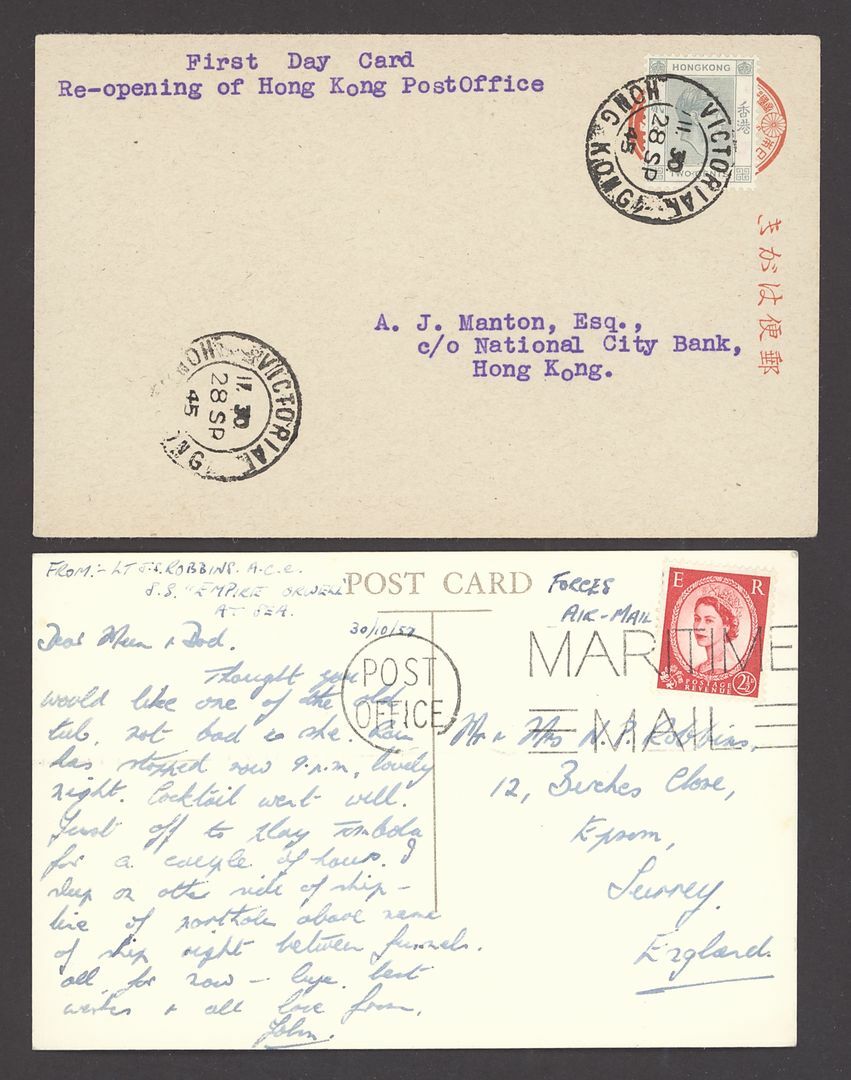 First Day Card
Re-opening of Hong Kong PostOffice
HONGKONG
香港
TWO CENTS
VICTORIA
HONG KONG
11.30
28 SP
45
きがは便郵
A. J. Manton, Esq.,
c/o National City Bank,
Hong Kong.
VICTORIA
HONG KONG
11.30
28 SP
45
FROM:- LT J.S. ROBBINS. A.C.C.
S.S. "EMPIRE ORWELL"
AT SEA.
POST CARD
FORCES
AIR-MAIL
30/10/57
E R
POSTAGE
REVENUE
2½D
POST
OFFICE
MARITIME
MAIL
Dear Mum & Dad,
Thought you
would like one of the old
tub, not bad is she. Rain
has stopped now 9 p.m, lovely
night. Cocktail went well.
Just off to play Tombola
for a couple of hours. I
sleep on other side of ship -
line of porthole above name
of ship right between funnels.
all for now - best
wishes & all love from,
John.
Mr & Mrs N.P. Robbins,
12, Birches Close,
Epsom,
Surrey.
England.